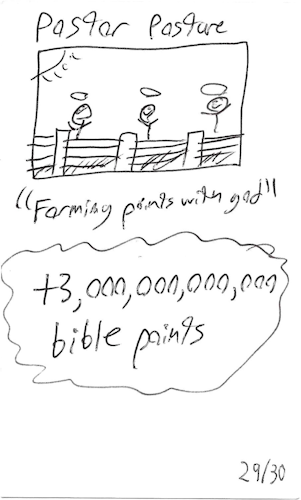 Pastor Pasture
"Farming points with god"
+3,000,000,000,000
bible points
29/30